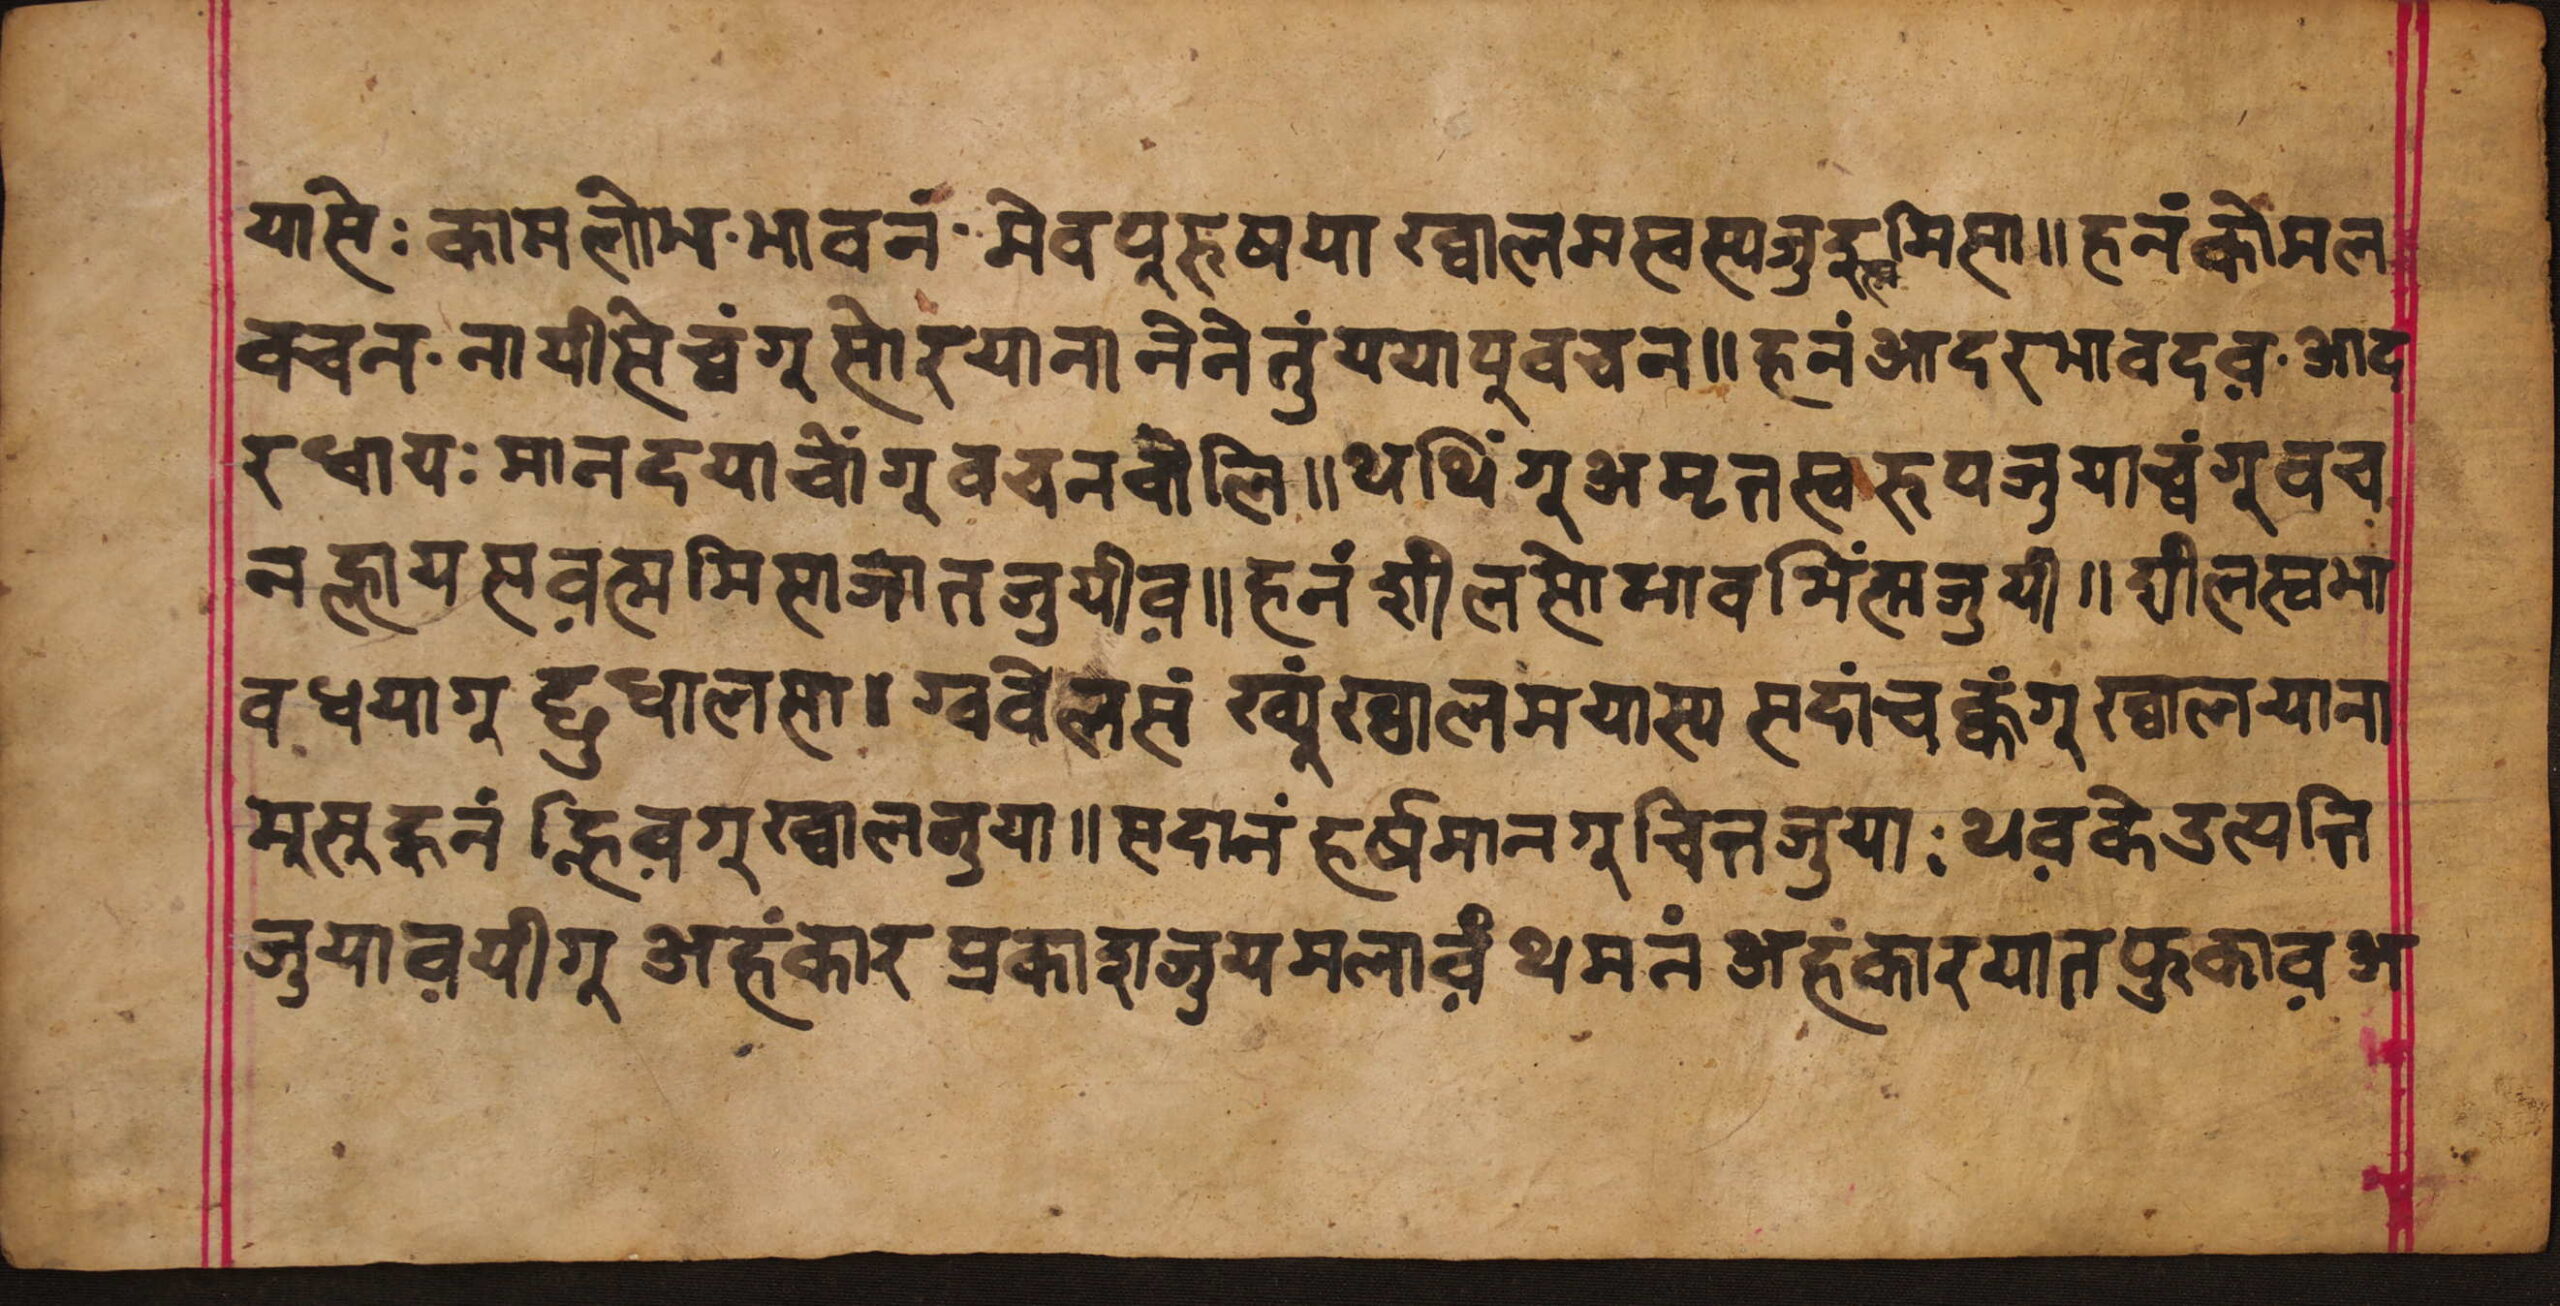 यासेः कामलोभ·भावनं·मेवपुरुषया ख्वालमस्वस्यजुइह्ममिसा॥ हनं कोमल
वचन·नायीसे च्वंगु सोरयाना नेने तुं यययापुवचन॥ हनं आदरभावदव़·आद
रधायः मानदयाचोंगु वचनबोलि॥ थथिंगु अमृतस्वरुपजुयाच्वंगु वच
न ह्लाय सव़ह्ममिसाजातजुयीव़॥ हनं शील सोभाव भिंह्मजुयी॥ शीलस्वभा
व धयागु छु धालसा। ग्ववेलसं ख्युंख्वालमयास्य सदांच कंगु ख्वालयाना
मुसुहुनं ह्लिव़गु ख्वालजुया॥ सदानं हर्षमानगु चित्तजुयाः थव़के उत्पत्ति
जुयाव़यीगु अहंकार प्रकाशजुयमलावं़ थमनं अहंकारयात फुकाव़ अ